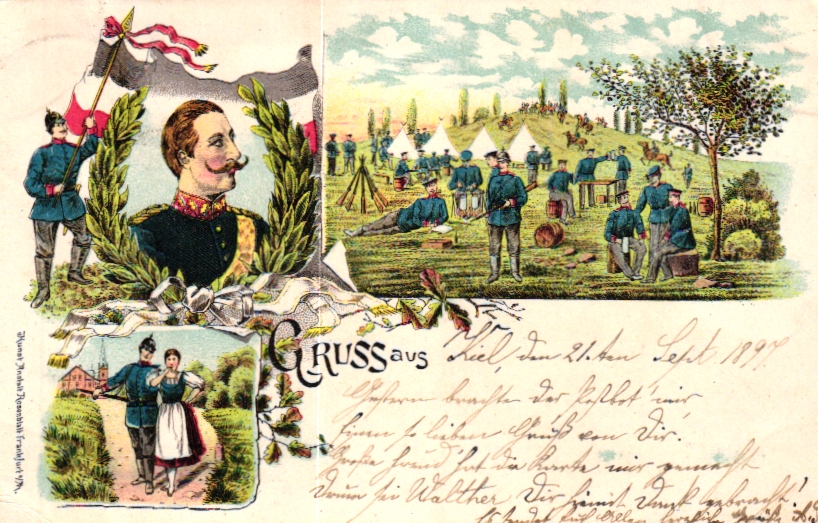 Kunst Anstalt Rosenblatt Frankfurt a/M.
GRUSS aus Kiel, den 21.ten Sept. 1897.
Gestern brachte der Postbot' mir
Einen so lieben Gruß von Dir.
Große Freud' hat die Karte mir gemacht
Drum sei Walther Dir heut' Dank gebracht!
Es sendet